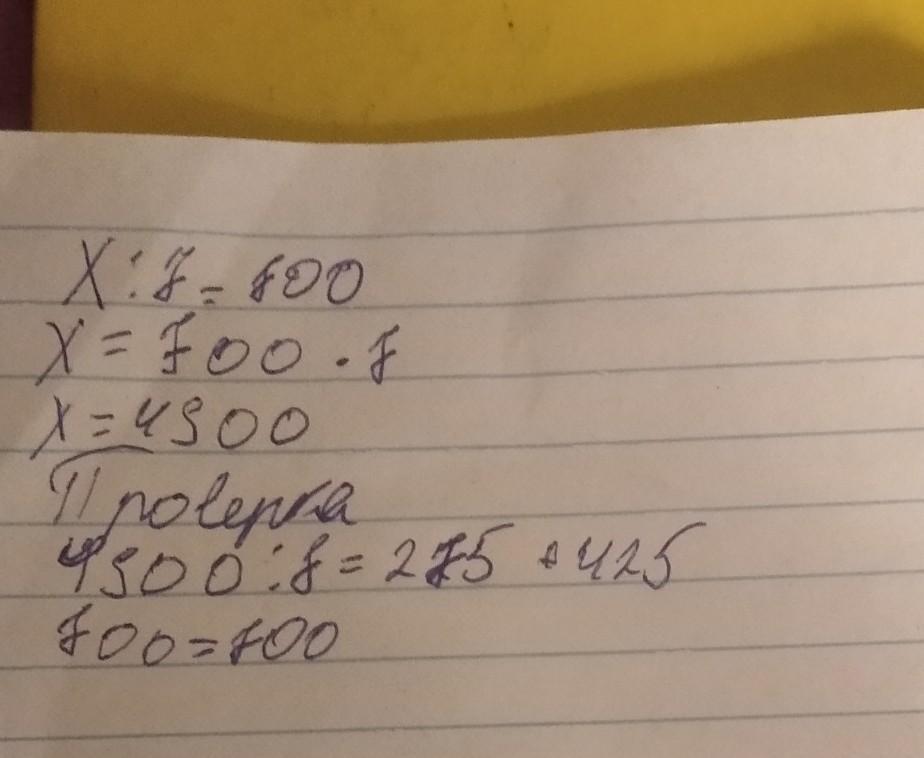 X : 7 = 700
X = 700 · 7
X = 4900
Проверка
4900 : 7 = 275 + 425
700 = 700